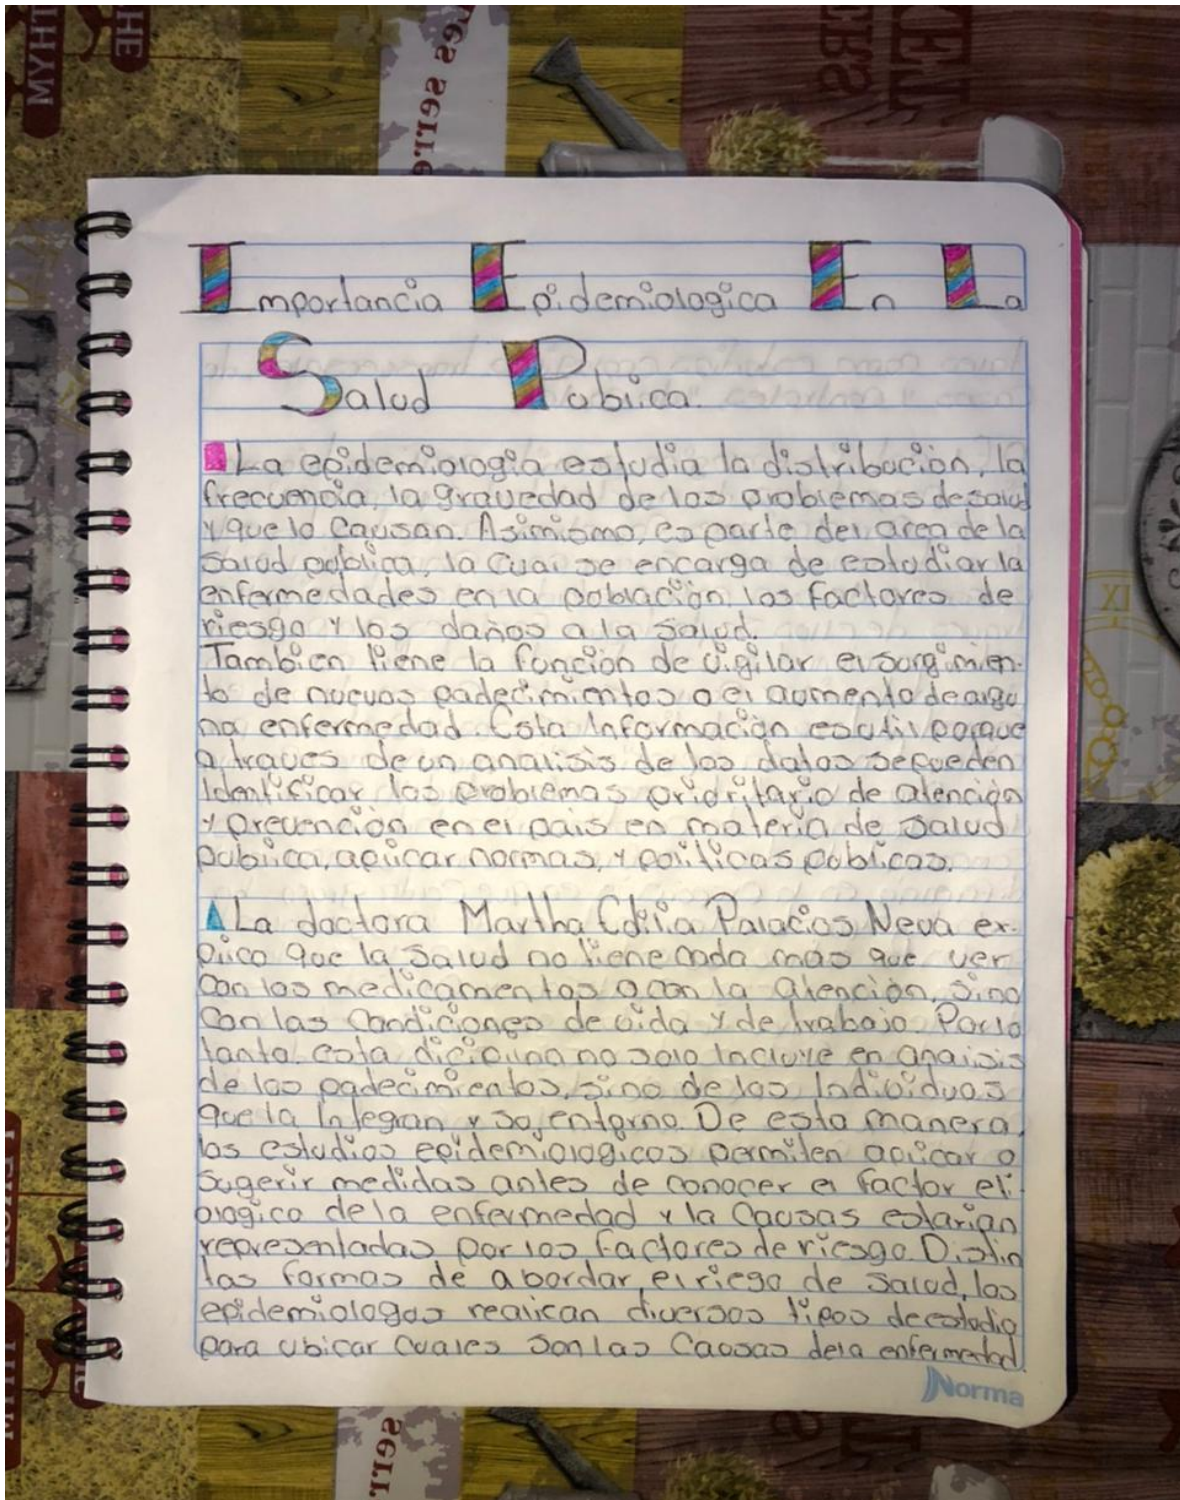 MYHT
THE
res serre
LET
ERS
HOME
XI
Importancia Epidemiologica En La
Salud Pubica.
La epidemiologia estudia la distribución, la
frecuencia, la gravedad de los problemas de salud
y que lo causan. Asimismo, es parte del area de la
salud publica, la cual se encarga de estudiar la
enfermedades en la población los factores de
riesgo y los daños a la salud.
Tambien tiene la función de vigilar el surgimien-
to de nuevos padecimientos o el aumento de algu
na enfermedad. Esta Información es util porque
a traves de un analisis de los datos se pueden
Identificar los problemas prioritario de atención
y prevención en el pais en materia de salud
publica, aplicar normas, y politicas publicas.
La doctora Martha Edilia Palacios Neva ex-
plico que la salud no tiene nada mas que ver
con los medicamentos o con la atención, sino
con las condiciones de vida y de trabajo. Por lo
tanto, esta diciplina no solo Incluye en analisis
de los padecimientos, sino de los Individuos
que la Integran y su entorno. De esta manera,
los estudios epidemiologicos permiten aplicar o
sugerir medidas antes de conocer el factor eti-
ologico de la enfermedad y la causas estarian
representadas por los factores de riesgo. Distin
las formas de abordar el riego de salud, los
epidemiologos realican diversos tipos de estudio
para ubicar cuales son las causas de la enfermedad.
Norma
serr